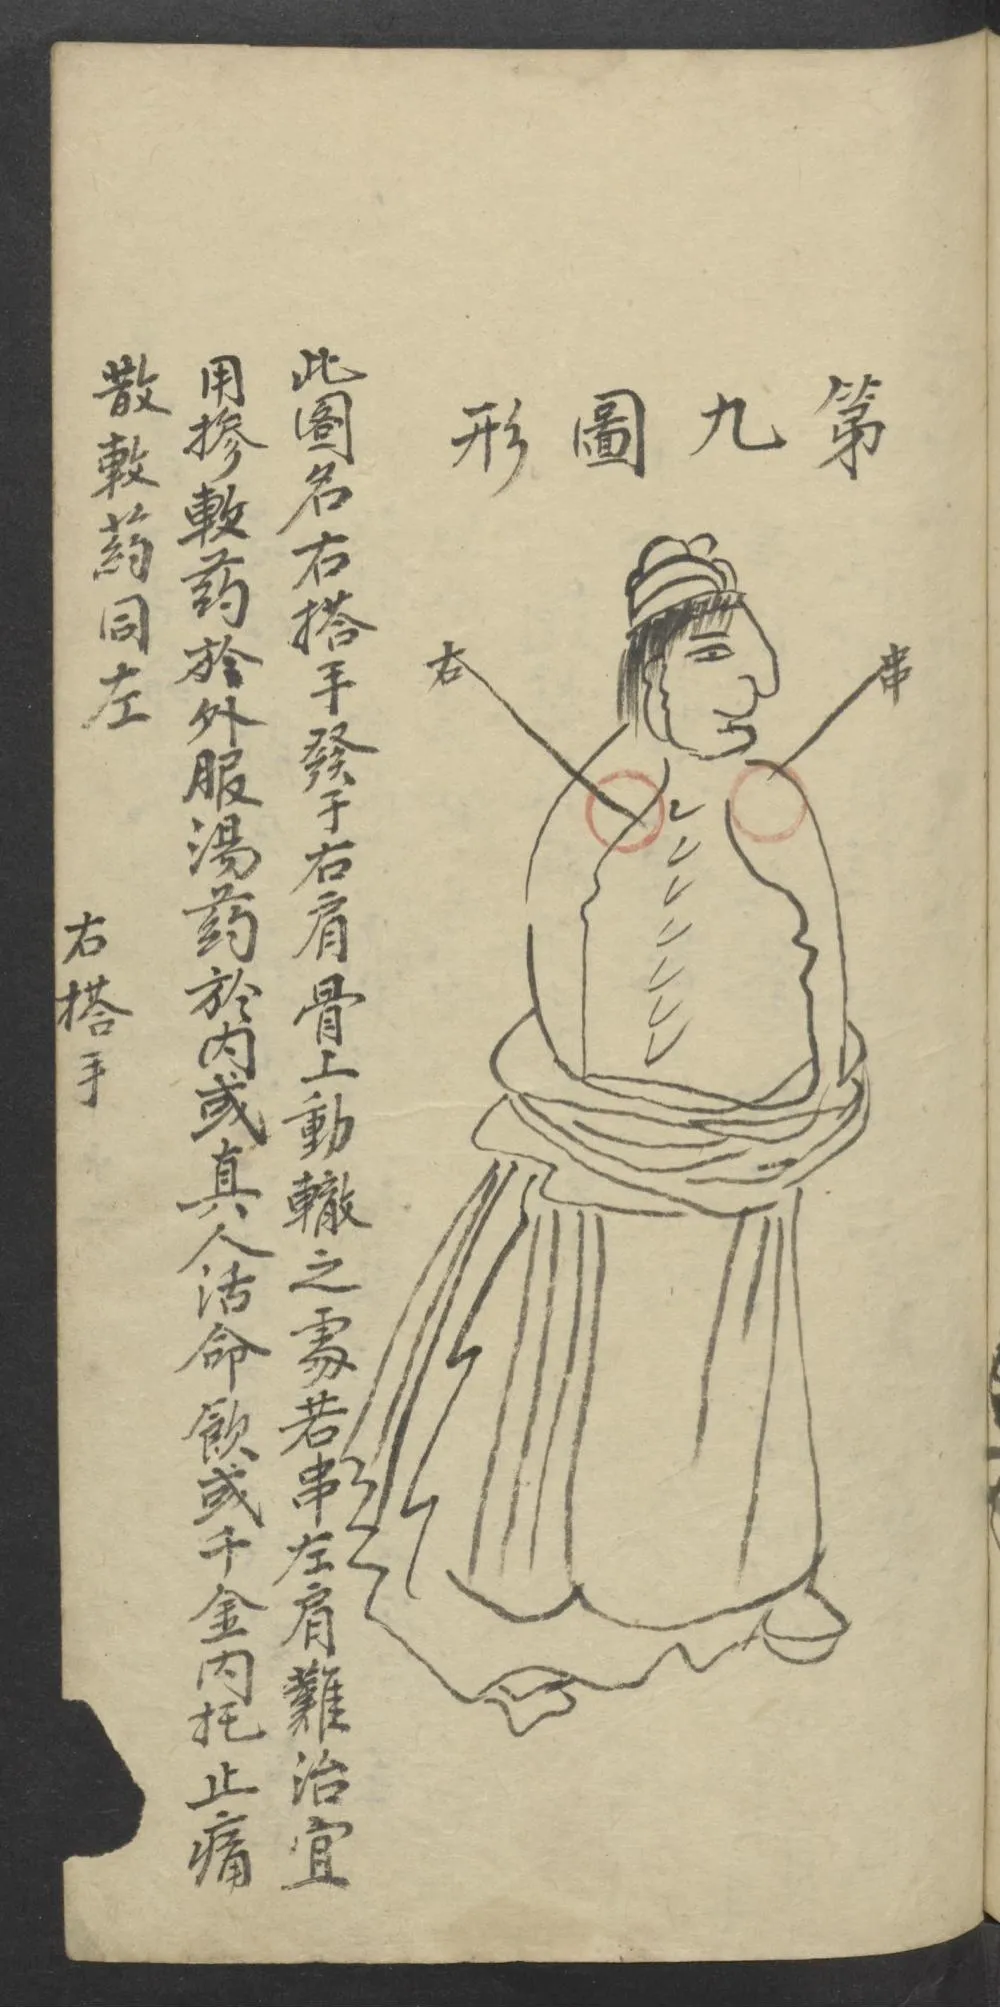 第九圖形
串
右
此圖名右搭手發于右肩骨上動轍之處若串左肩難治宜
用摻敷药於外服湯药於内或真人活命飲或千金内托止痛
散敷药同左
右搭手